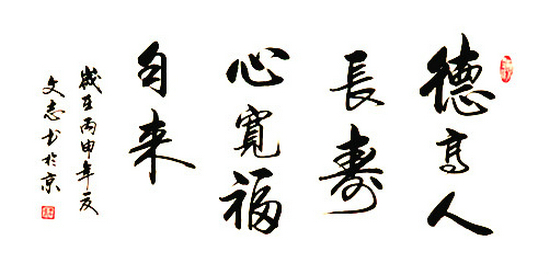 德高人
長壽
心寬福
自来
歲在丙申年夏
文志书於京